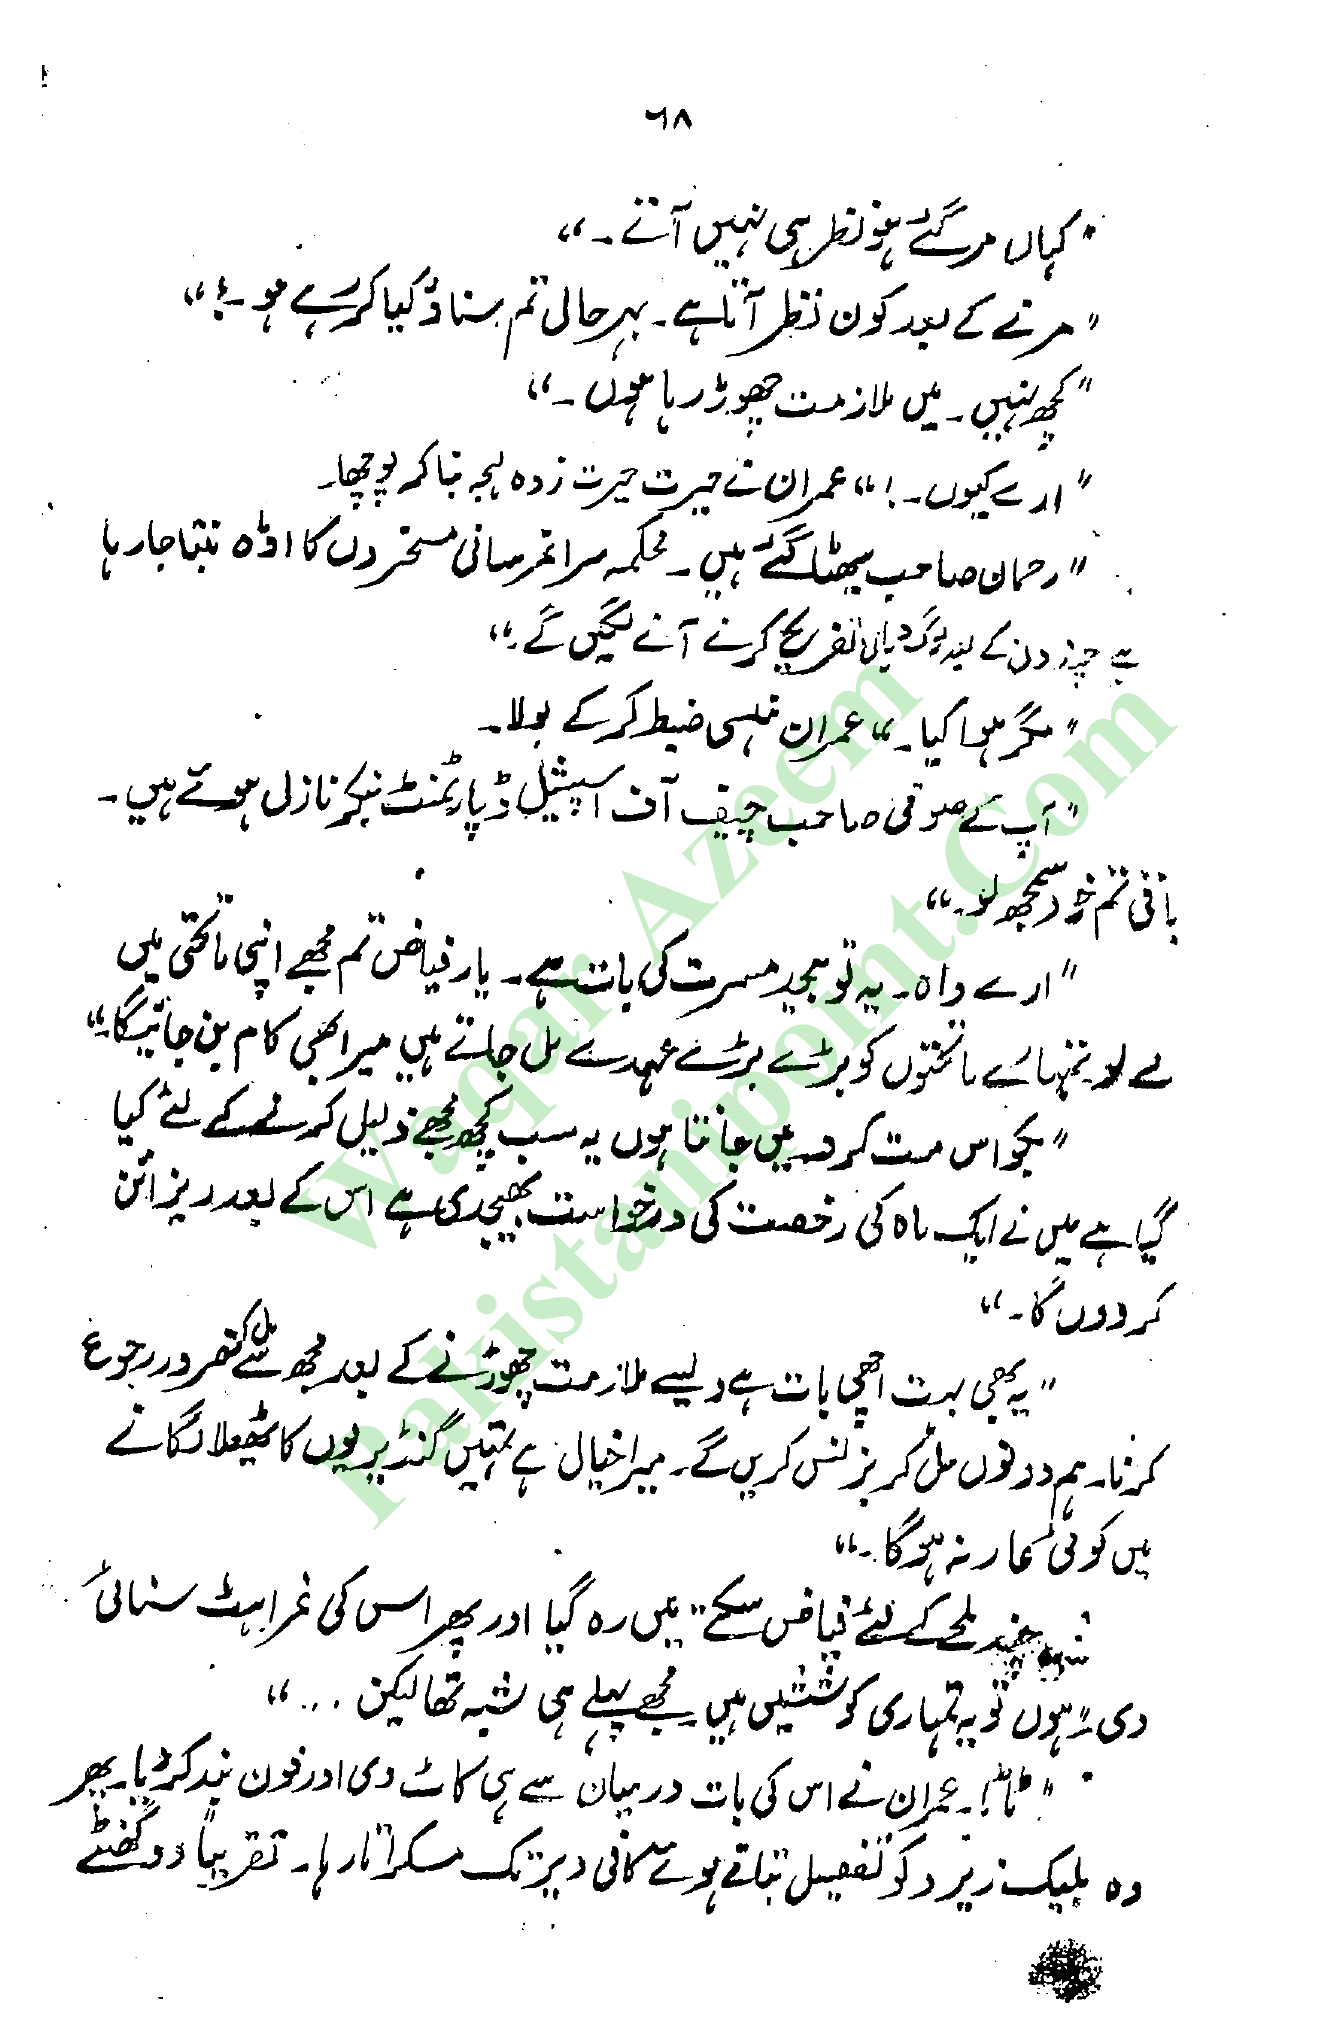 ۶۸
"کہاں مر گئے ہو نظر ہی نہیں آتے۔"
"مرنے کے بعد کون نظر آتا ہے۔ بہر حال تم سناؤ کیا کر رہے ہو۔!"
"کچھ نہیں۔ میں ملازمت چھوڑ رہا ہوں۔"
"ارے کیوں۔!" عمران نے حیرت حیرت زدہ لہجہ بنا کر پوچھا۔
"رحمان صاحب بھنا گئے ہیں۔ محکمہ سراغرسانی مسخروں کا اڈہ بنتا جا رہا
ہے چند دن کے بعد لوگ یہاں تفریح کرنے آنے لگیں گے۔"
"مگر ہوا کیا۔" عمران ہنسی ضبط کر کے بولا۔
"آپ کے صوفی صاحب چیف آف اسپیشل ڈپارٹمنٹ بنکر نازل ہوئے ہیں۔
باقی تم خود سمجھ لو۔"
"ارے واہ۔ یہ تو بیحد مسرت کی بات ہے۔ یار فیاض تم مجھے اپنی ماتحتی میں
لے لو تمہارے ماتحتوں کو بڑے بڑے عہدے مل جاتے ہیں میرا بھی کام بن جائیگا۔"
"بکواس مت کرو۔ میں جانتا ہوں یہ سب کچھ مجھے ذلیل کرنے کے لئے کیا
گیا ہے میں نے ایک ماہ کی رخصت کی درخواست بھیجدی ہے اس کے بعد ریزائن
کر دوں گا۔"
"یہ بھی بہت اچھی بات ہے ویسے ملازمت چھوڑنے کے بعد مجھ سے ضرور رجوع
کرنا۔ ہم دونوں مل کر بزنس کریں گے۔ میرا خیال ہے تمہیں گنڈیریوں کا ٹھیلا لگانے
میں کوئی عار نہ ہوگا۔"
چند لمحے کے لئے فیاض سکتے میں رہ گیا اور پھر اس کی غراہٹ سنائی
دی "ہوں تو یہ تمہاری کوششیں ہیں۔ مجھے پہلے ہی شبہ تھا لیکن ..."
"ٹاٹا۔ عمران نے اس کی بات درمیان سے ہی کاٹ دی اور فون بند کر دیا۔ پھر
وہ بلیک زیرو کو تفصیل بتاتے ہوئے کافی دیر تک مسکراتا رہا۔ تقریباً دو گھنٹے
Waqar Azeem
Pakistanipoint.Com